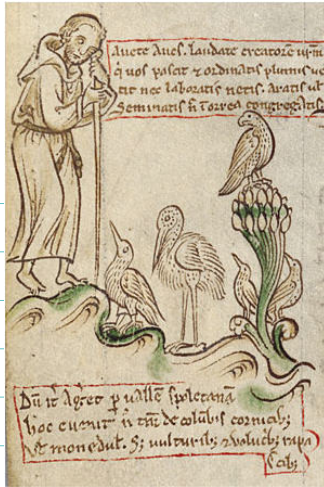 Auete Aues. laudate creatorē urm̄
q̇ uos pascit ⁊ ordinatis plumis ue
tit nec laboratis netis. aratis ul̄
Seminatis n̄ horrea congregatis
Dū it̄ Ag̃et p̱ uallē spoletanā
hoc euenit n̄ tm̄ de colūbis cornicib;
ł monedul̄. S; uulturib; ⁊ uolucib; rapa
cib;